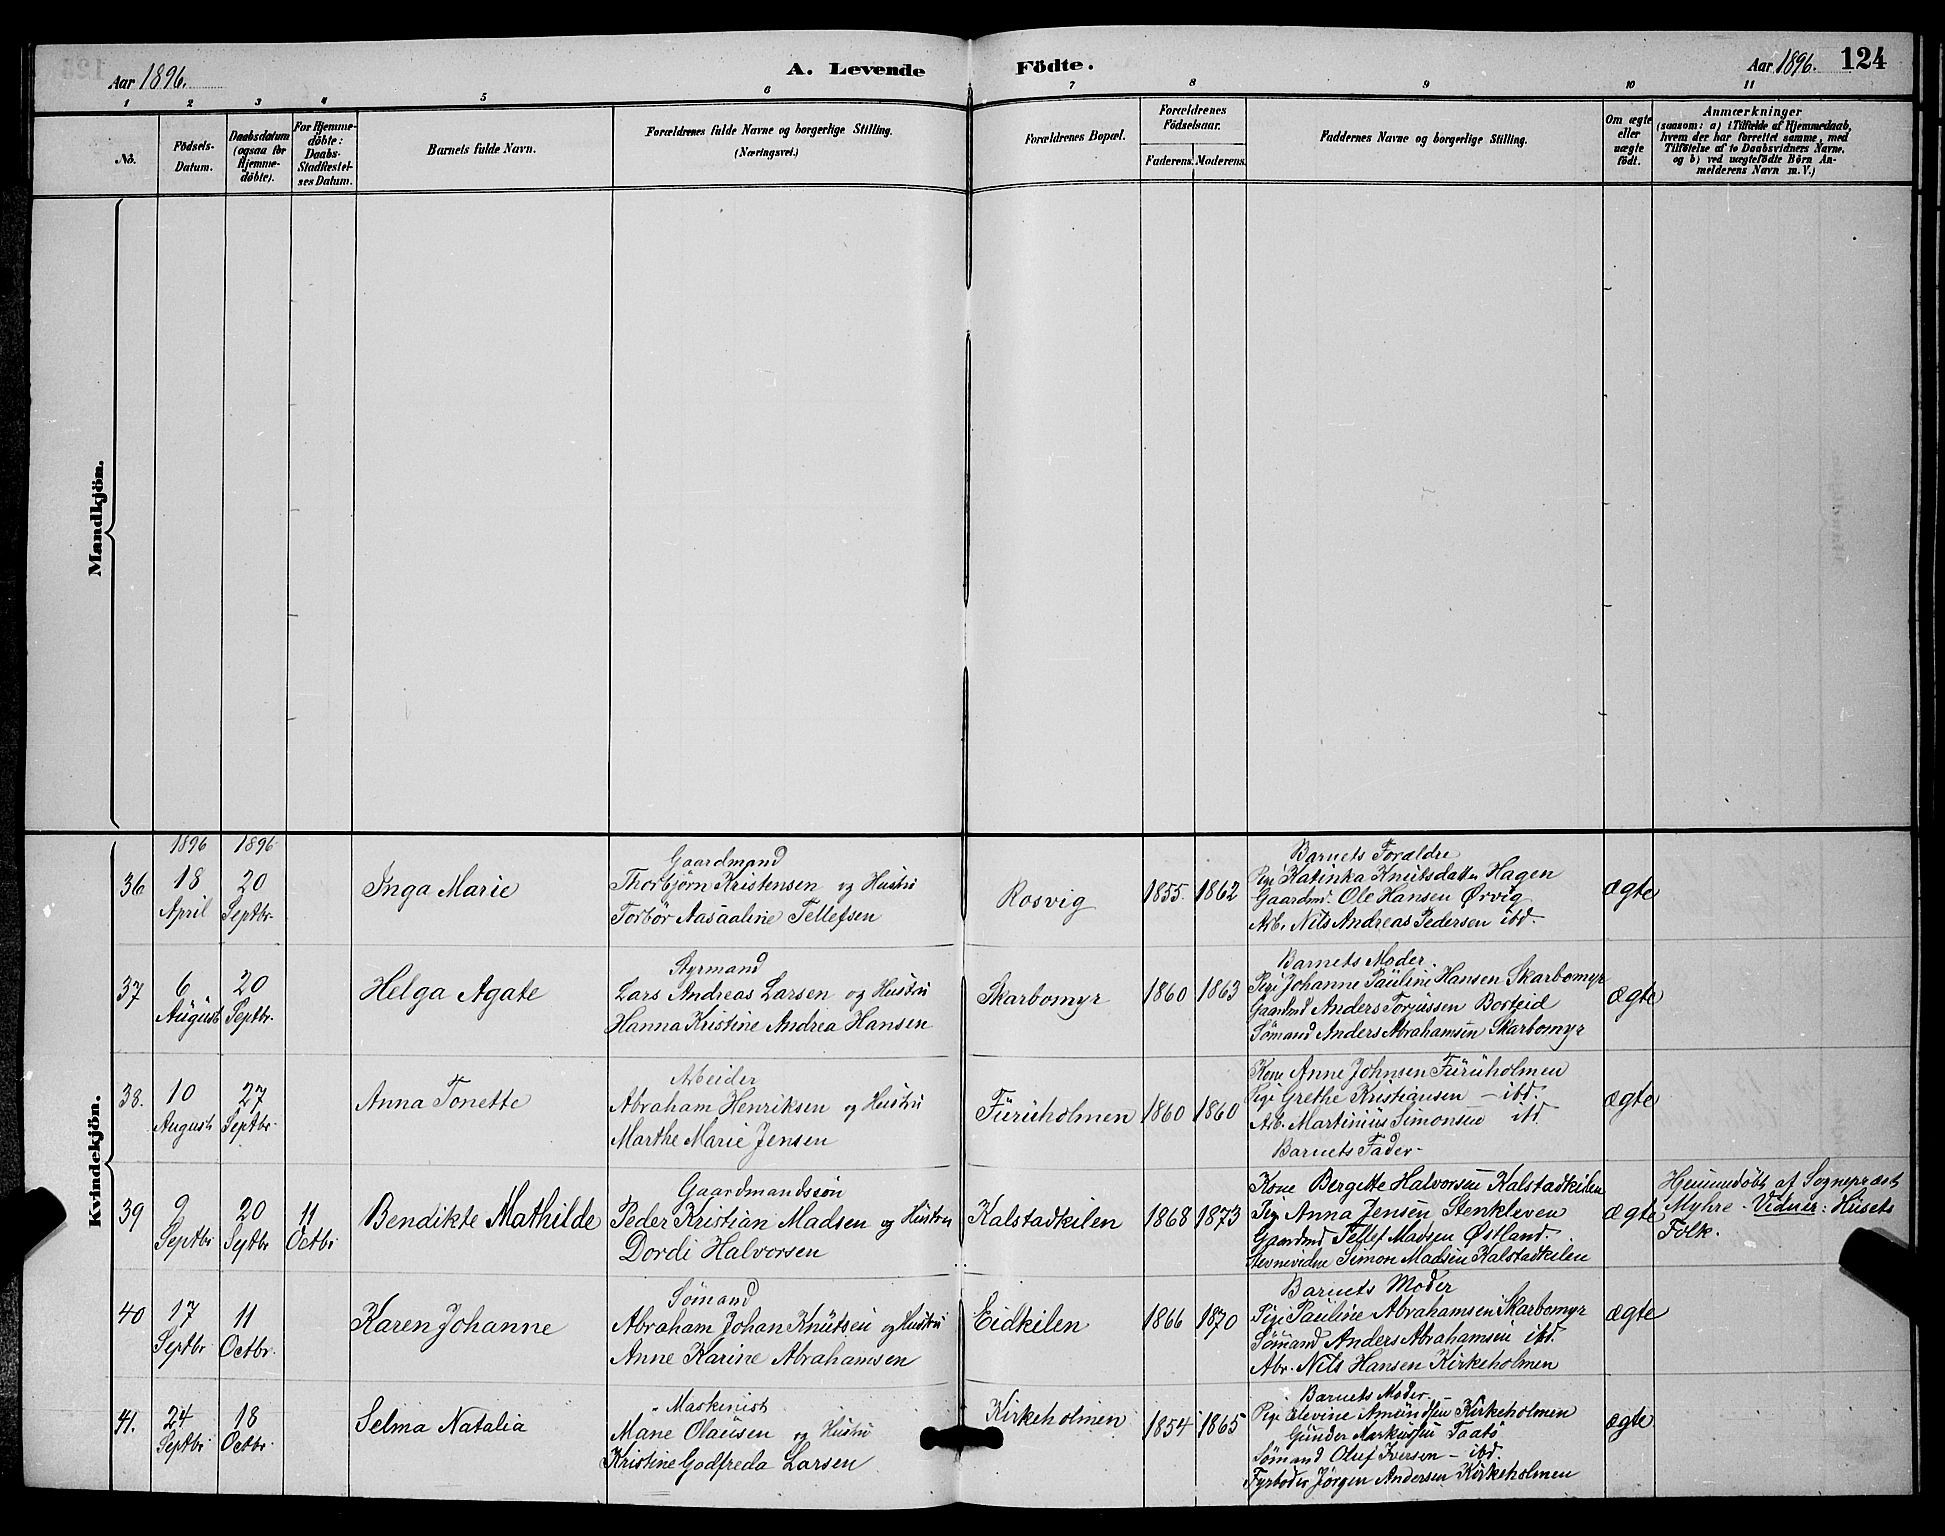 Aar 1896.
A. Levende Födte.
Aar 1896. 124
1 2 3 4 5 6 7 8 9 10 11
No.
Födsels-
Datum.
Daabsdatum
(ogsaa for
Hjemme-
döbte).
For Hjemme-
döbte:
Daabs-
Stadfæstel-
ses Datum.
Barnets fulde Navn.
Forældrenes fulde Navne og borgerlige Stilling.
(Næringsvei.)
Forældrenes Bopæl.
Forældrenes
Födselsaar.
Faderens. Moderens.
Faddernes Navne og borgerlige Stilling.
Om ægte
eller
uægte
födt.
Anmærkninger
(saasom: a) i Tilfælde af Hjemmedaab,
hvem der har forrettet samme, med
Tilföielse af to Daabsvidners Navne,
og b) ved uægtefödte Börn An-
melderens Navn m. V.)
Mandkjön.
Kvindekjön.
1896 1896
36
18
April
20
Septbr.
Inga Marie
Gaardmand
Thorbjørn Kristensen og Hustru
Torbør Aasaaline Tellefsen
Rosvig
1855. 1862
Barnets Forældre
Pige Katinka Knutsdatter Hagen
Gaardmd. Ole Hansen Ørvig
Arb. Nils Andreas Pedersen ibd.
ægte
37
6
August
20
Septbr.
Helga Agate
Styrmand
Lars Andreas Larsen og Hustru
Hanna Kristine Andrea Hansen
Skarbomyr
1860 1863
Barnets Moder.
Pige Johanne Pauline Hansen Skarbomyr
Gaardmd Anders Torjussen Borteid
Sømand Anders Abrahamsen Skarbomyr
ægte
38.
10
August
27
Septbr.
Anna Tonette
Arbeider
Abraham Henriksen og Hustru
Marthe Marie Jensen
Furuholmen
1860 1860
Kone Anne Johnsen Furuholmen
Pige Grethe Kristiansen - ibd.
Arb. Martinius Simonsen ibd.
Barnets Fader.
ægte
39
9
Septbr
20
Septbr
11
Octbr
Bendikte Mathilde
Gaardmandssøn
Peder Kristian Madsen og Hustru
Dordi Halvorsen
Kalstadkilen
1868 1873
Kone Bergitte Halvorsen Kalstadkilen
Pige Anna Jensen Stenkleven
Gaardmd Tellef Madsen Østland.
Stevnevidne Simon Madsen Kalstadkilen
ægte
Hjemmedøbt af Sogneprest
Myhre. Vidner: Husets
Folk.
40
17
Septbr.
11
Octbr.
Karen Johanne
Sømand
Abraham Johan Knutsen og Hustru
Anne Karine Abrahamsen
Eidkilen
1866 1870
Barnets Moder
Pige Pauline Abrahamsen Skarbomyr
Sømand Anders Abrahamsen ibd.
Abr. Nils Hansen Kirkeholmen
ægte
41.
24
Septbr
18
Octbr.
Selma Natalia
Maskenist
Mane Olausen og Hustru
Kristine Godfreda Larsen
Kirkeholmen
1854 1865
Barnets Moder.
Pige Elevine Amundsen Kirkeholmen
Gunder Markussen Taatø
Sømand Oluf Iversen - ibd.
Fyrbøder Jørgen Andersen Kirkeholmen
ægte